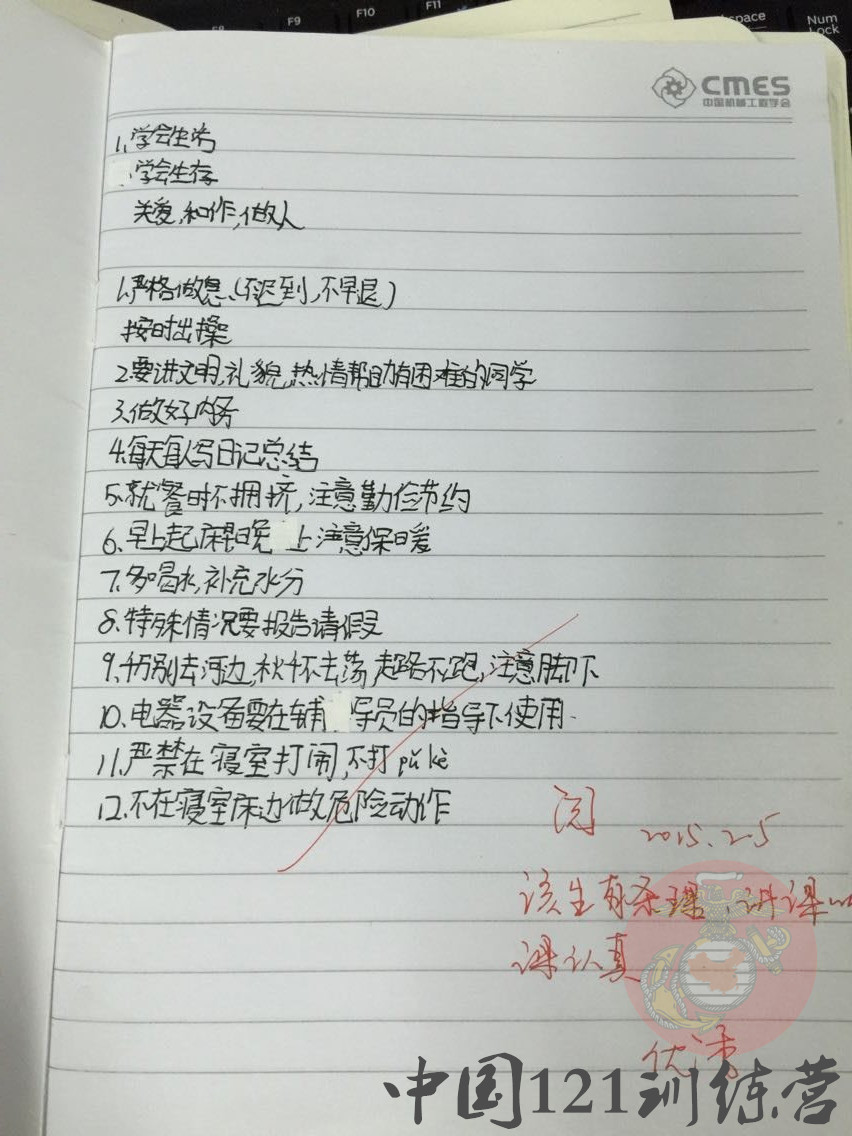 F9
F10
F11
space
Num
Lock
CMES
中国机械工程学会
1、学会生活
学会生存
关爱,和作,做人
1.严格做息、(不迟到,不早退)
按时出操
2.要讲文明,礼貌,热情帮助有困难的同学
3.做好内务
4.每天每人写日记总结
5.就餐时不拥挤,注意勤俭节约
6、早上起床和晚上注意保暖
7、多喝水,补充水分
8、特殊情况要报告请假
9、千万别去河边,秋千不去荡,走路不跑,注意脚下
10、电器设备要在辅导员的指导下使用.
11、严禁在寝室打闹,不打pǔ kè
12、不在寝室床边做危险动作
阅
2015.2.5
该生有条理,讲课
课认真
优秀
中国121训练营